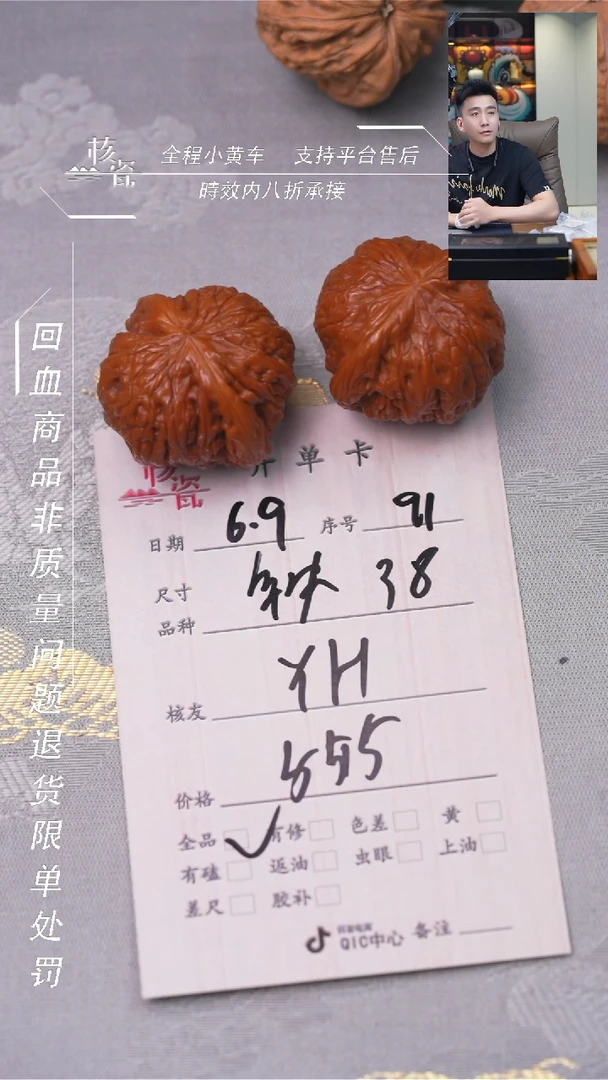 核瓷
全程小黄车 支持平台售后
時效内八折承接
回血商品非质量问题退货限单处罚
核瓷 开单卡
日期 6.9 序号 91
尺寸 38
品种
核友 YH
价格 555
全品 ✓ 有修 色差 黄
有磕 返油 虫眼 上油
差尺 胶补
抖音电商
QIC中心 备注